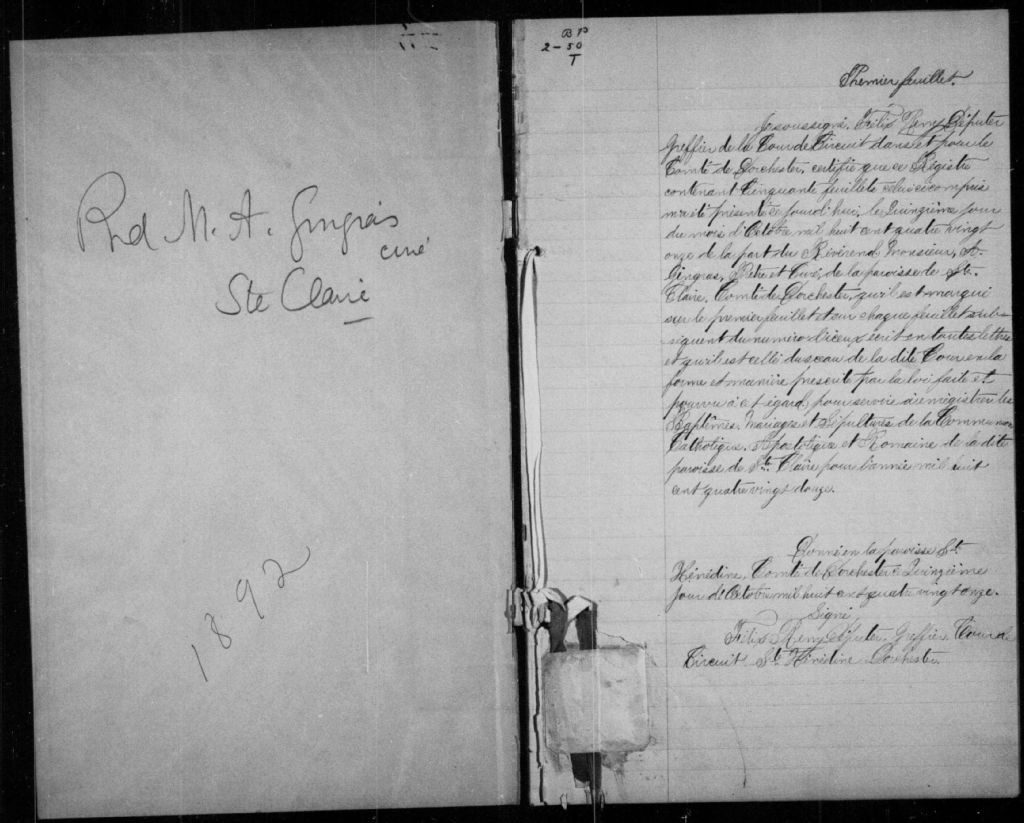 Rvd M. A. Gingras
curé
Ste Claire
1892
B P
2-50
T
Premier feuillet.
Je soussigné, Félix Remy Député
Greffier de la Cour de Circuit dans et pour le
Comté de Dorchester, certifie que ce Régistre
contenant Cinquante feuillets celui ci compris
m'a été présenté ce jourd'hui, le Quinzième jour
du mois d'Octobre mil huit cent quatre vingt
onze de la part du Révérend Monsieur, A.
Gingras, Prêtre et Curé, de la paroisse de Ste
Claire, Comté de Dorchester, qu'il est marqué
sur le premier feuillet et sur chaque feuillet sub-
siquent du numéro d'iceux écrit en toutes lettres
et qu'il est cellé du sceau de la dite Cour en la
forme et manière prescrite par la loi faite et
pourvu à cet égard, pour servir à enrégistrer les
Baptêmes, Mariages et Sépultures de la Communion
Catholique, Apostolique et Romaine de la dite
paroisse de Ste. Claire pour l'année mil huit
cent quatre vingt douze.
Donné en la paroisse Ste
Hénédine, Comté de Dorchester ce Quinzième
jour d'Octobre mil huit cent quatre vingt onze.
Signé
Félix Remy Député, Greffier, Cour de
Circuit Ste Hénédine Dorchester.